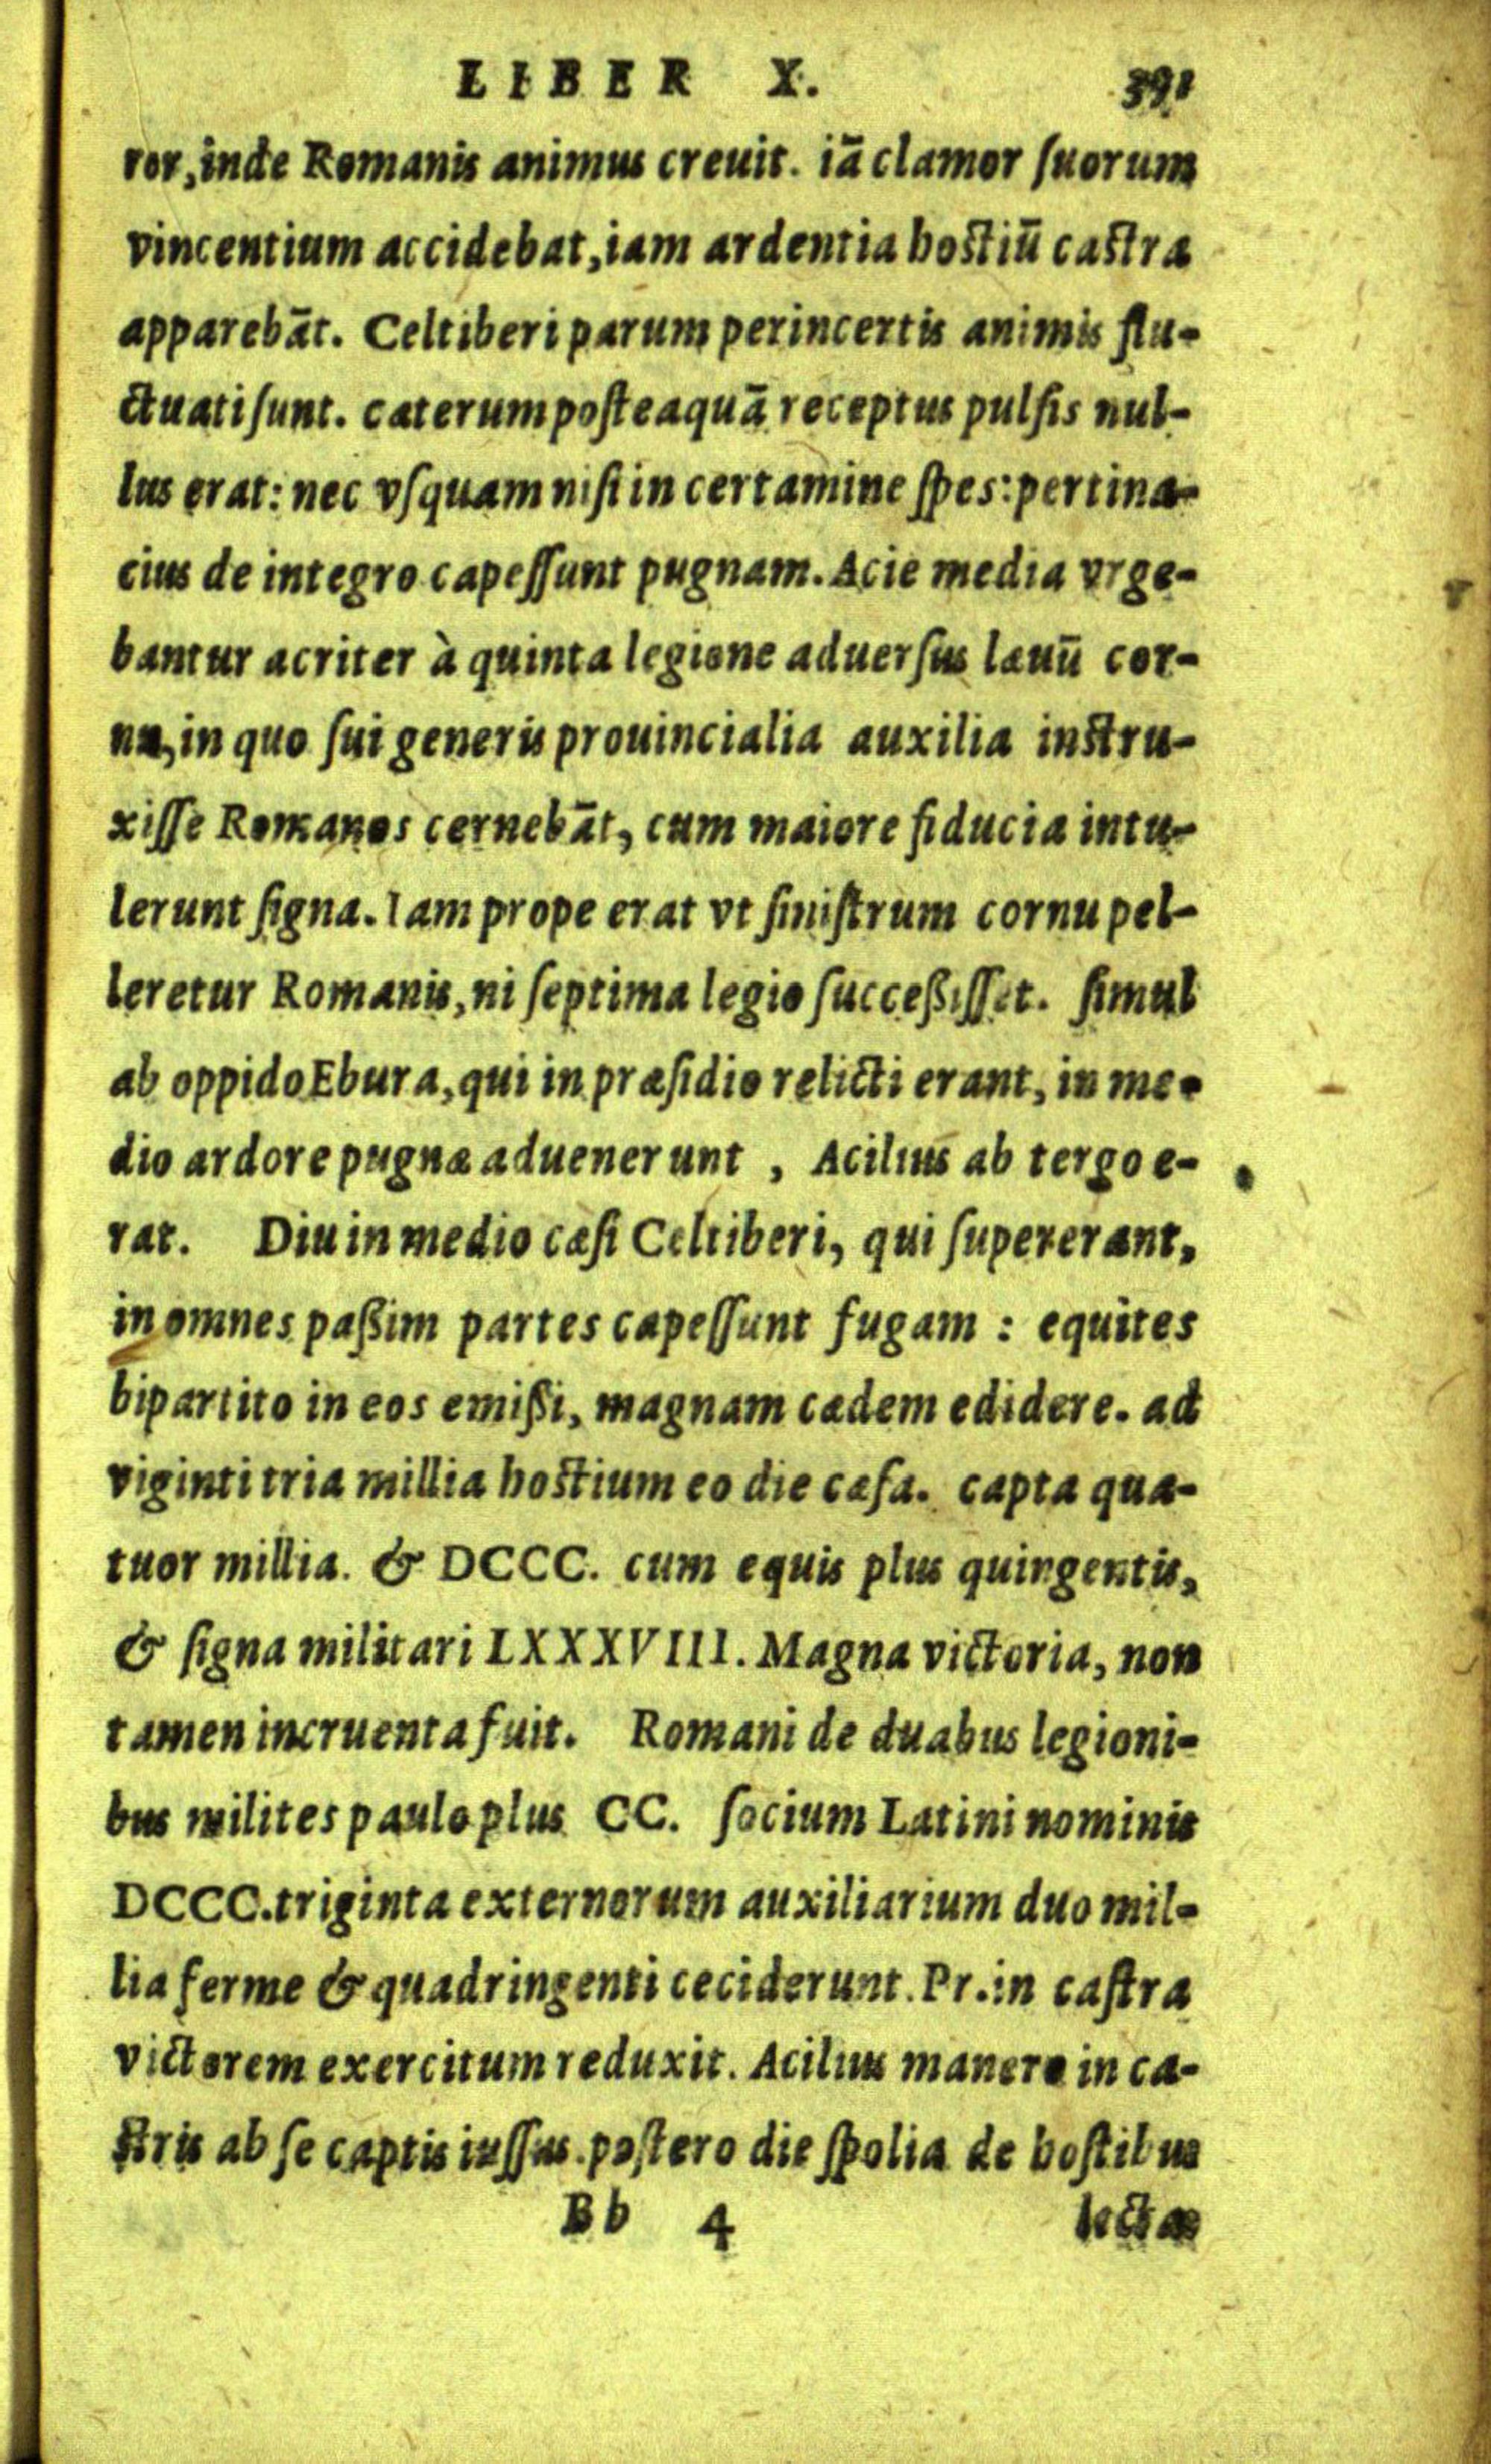 LIBER X. 391
ror, inde Romanis animus creuit. iā clamor ſuorum
vincentium accidebat, iam ardentia hoſtiū caſtra
apparebāt. Celtiberi parumper incertis animis flu-
ctuati ſunt. cæterum poſteaquā receptus pulſis nul-
lus erat: nec vſquam niſi in certamine ſpes: pertina-
cius de integro capeſſunt pugnam. Acie media vrge-
bantur acriter à quinta legione aduerſus læuū cor-
nu, in quo ſui generis prouincialia auxilia inſtru-
xiſſe Romanos cernebāt, cum maiore fiducia intu-
lerunt ſigna. Iam prope erat vt ſiniſtrum cornu pel-
leretur Romanis, ni ſeptima legio ſucceßiſſet. ſimul
ab oppido Ebura, qui in præſidio relicti erant, in me-
dio ardore pugnæ aduenerunt, Acilius ab tergo e-
rat. Diu in medio cæſi Celtiberi, qui ſupererant,
in omnes paßim partes capeſſunt fugam : equites
bipartito in eos emißi, magnam cædem edidere. ad
viginti tria millia hoſtium eo die cæſa. capta qua-
tuor millia. & DCCC. cum equis plus quingentis,
& ſigna militari LXXXVIII. Magna victoria, non
tamen incruenta fuit. Romani de duabus legioni-
bus milites paulo plus CC. ſocium Latini nominis
DCCC. triginta externorum auxiliarium duo mil-
lia ferme & quadringenti ceciderunt. Pr. in caſtra
victorem exercitum reduxit. Acilius manere in ca-
ſtris ab ſe captis iuſſus. poſtero die ſpolia de hoſtibus
Bb 4 lecta